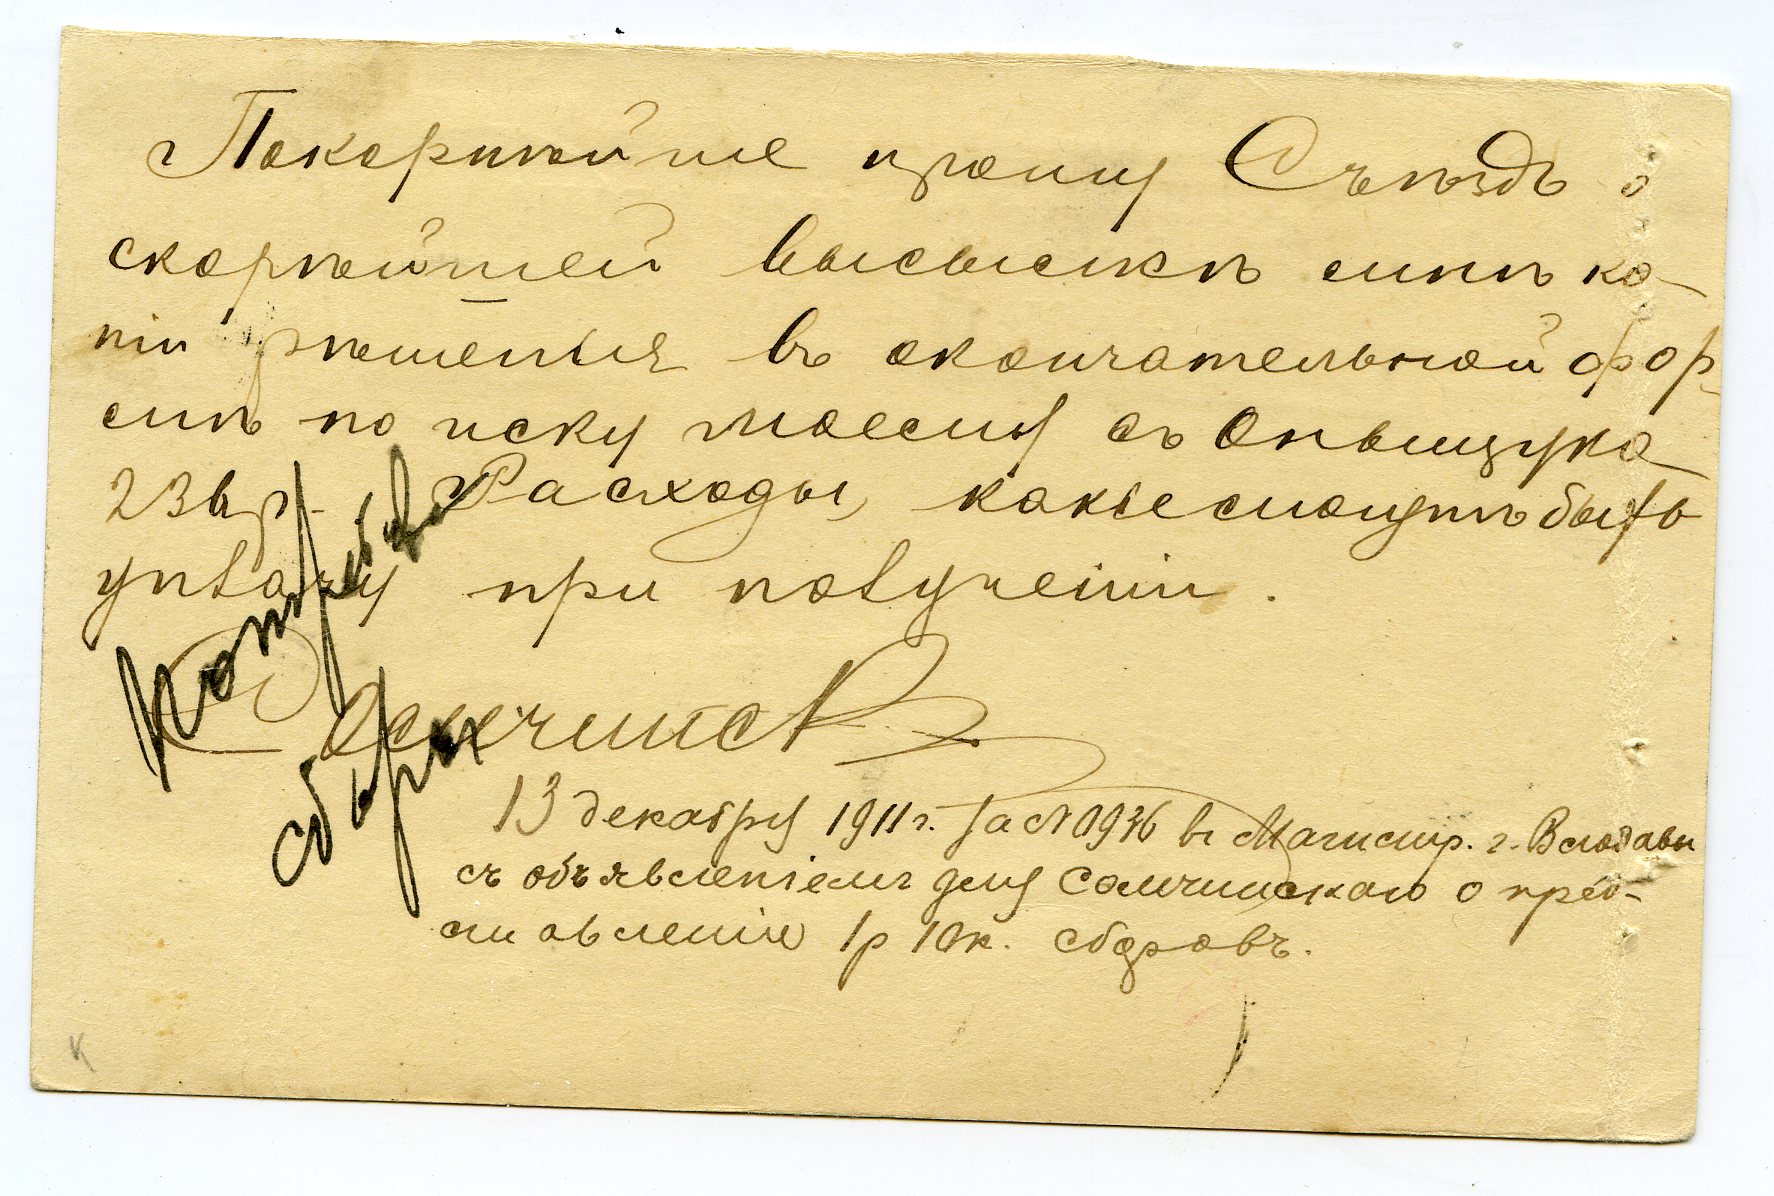 Покорнѣйше прошу Съѣздъ о
скорѣйшей высылкѣ мнѣ ко-
піи рѣшенія въ окончательной фор-
мѣ по иску моему съ
23 Расходы, какіе могутъ быть
уплачу при полученіи.
сборы
13 декабря 1911 г. за № 936 въ Магистр. г. Влодавы
съ объявленіемъ для Самчинскаго о пред-
ставленіе 1 р 10 к. сборовъ.
К